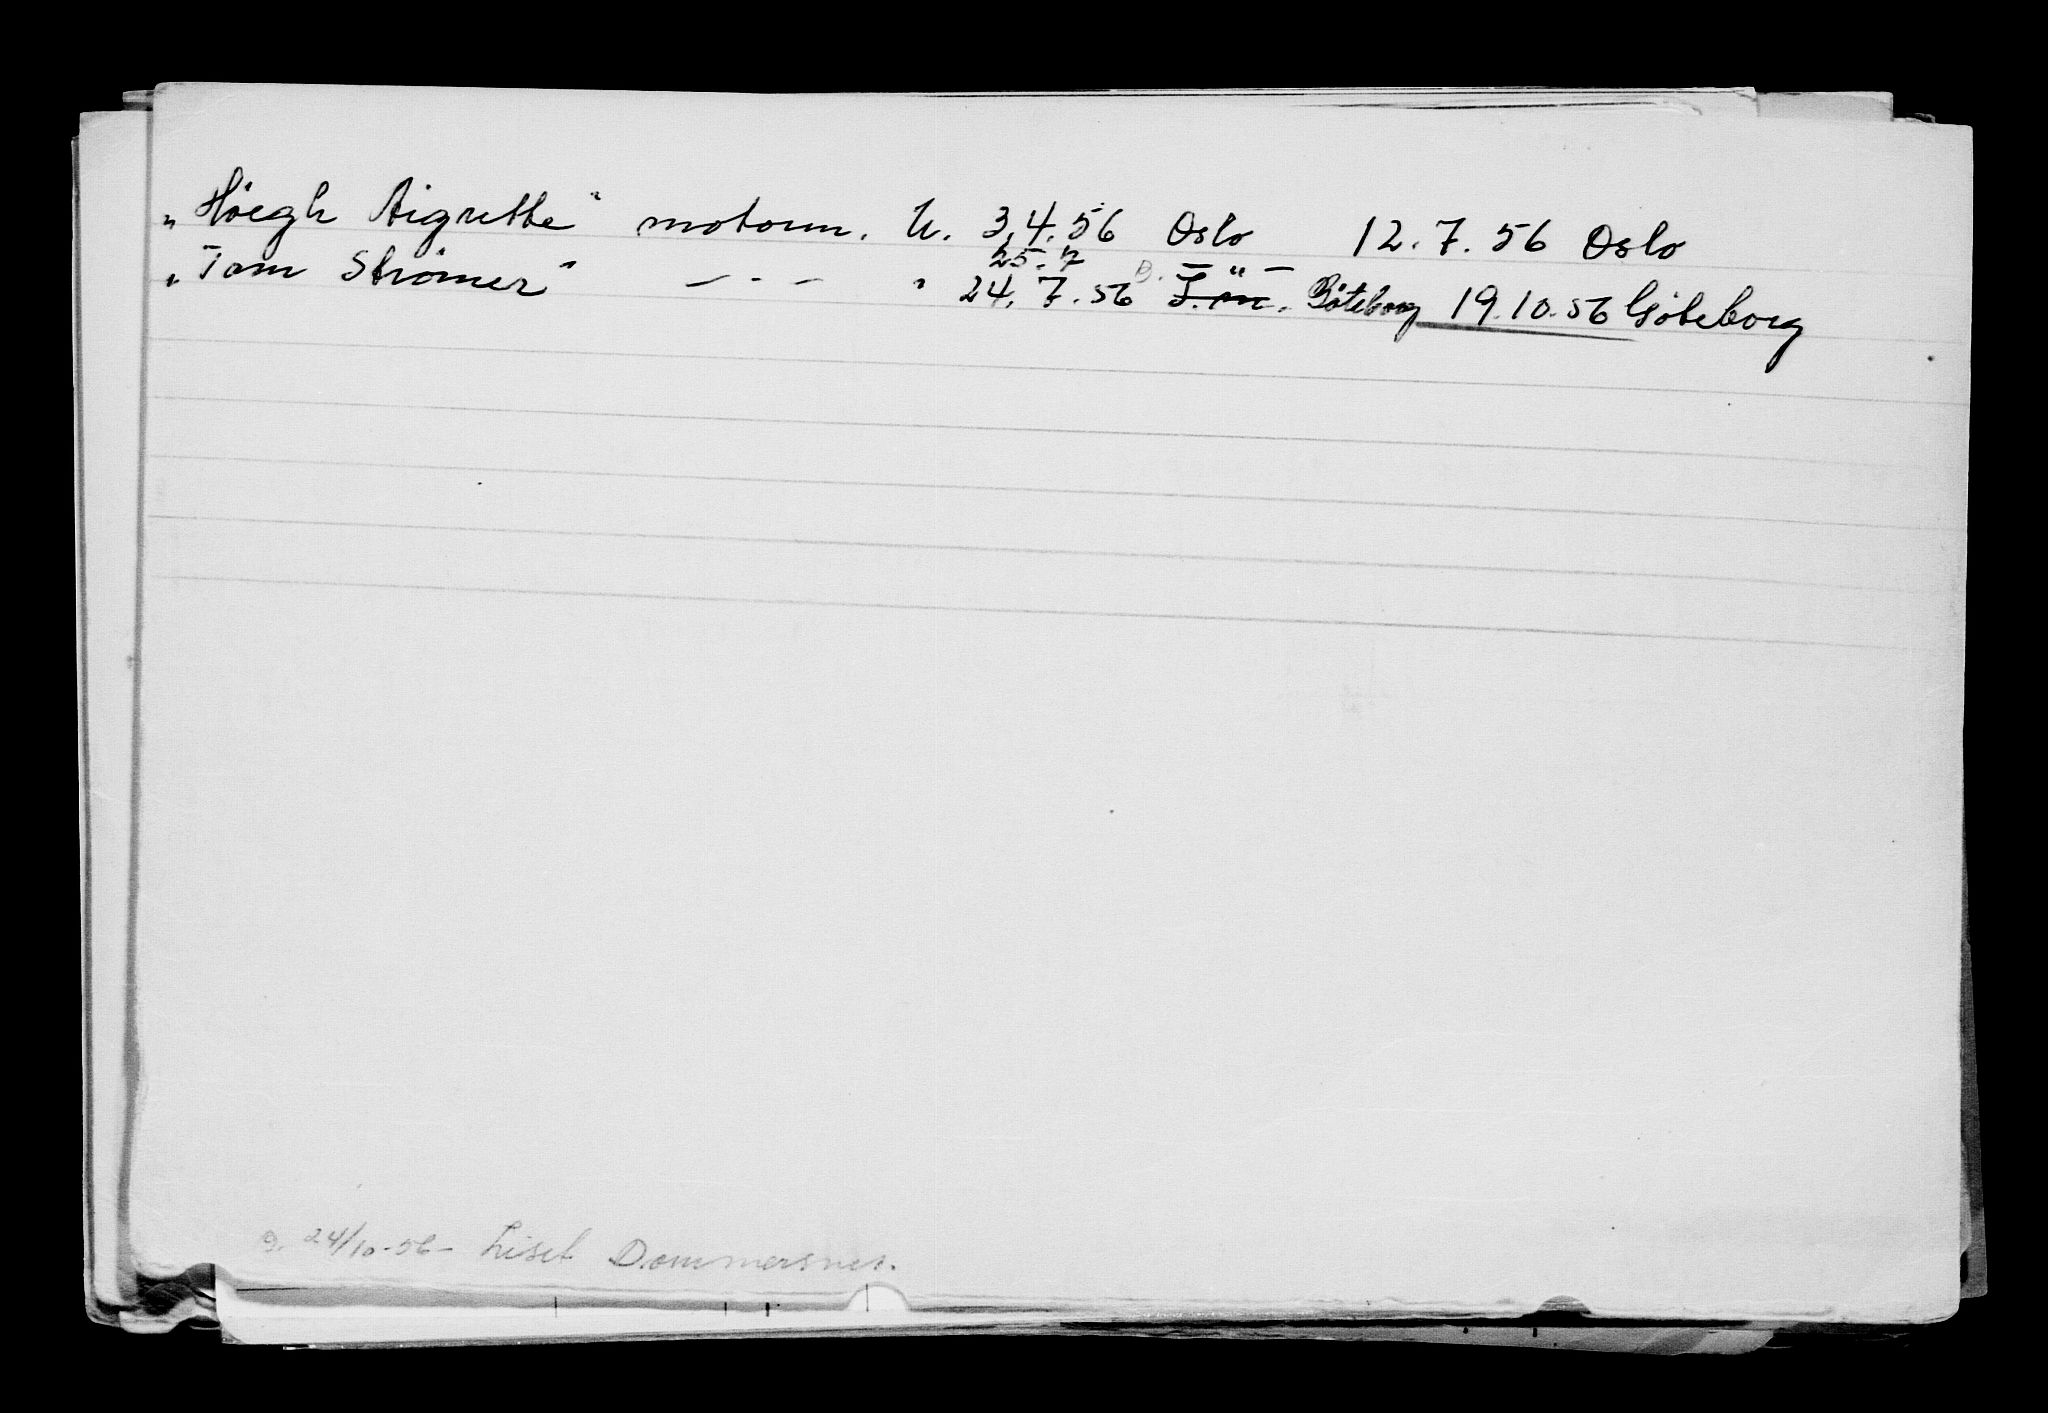 „Höegh Aigrette" motorm. U. 3.4.56 Oslo 12.7.56 Oslo
25.7
„Tom Strömer" — - — " 24.7.56 Göteborg 19.10.56 Göteborg
24/10-56- Liset Dommersnes.